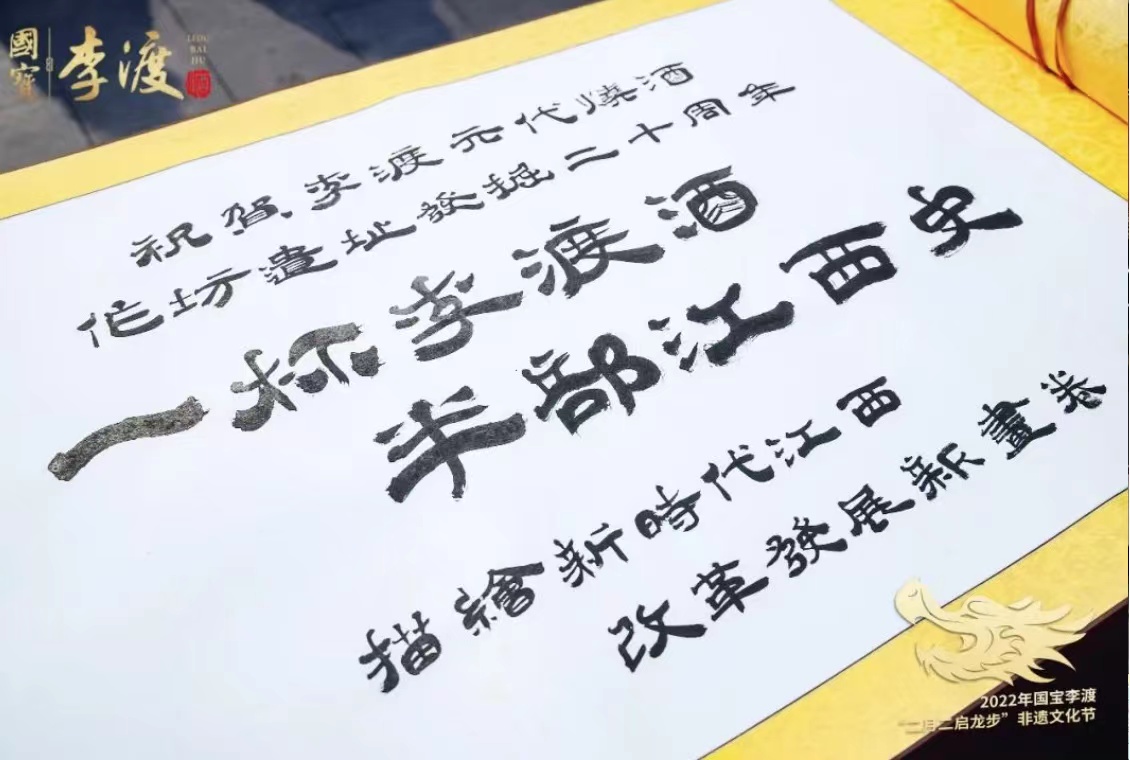 國寳 李渡
LIDU
BAI
JIU
祝賀李渡元代燒酒
作坊遺址發掘二十周年
一杯李渡酒
半部江西史
描繪新時代江西
改革發展新畫卷
2022年国宝李渡
“二月二启龙步”非遗文化节